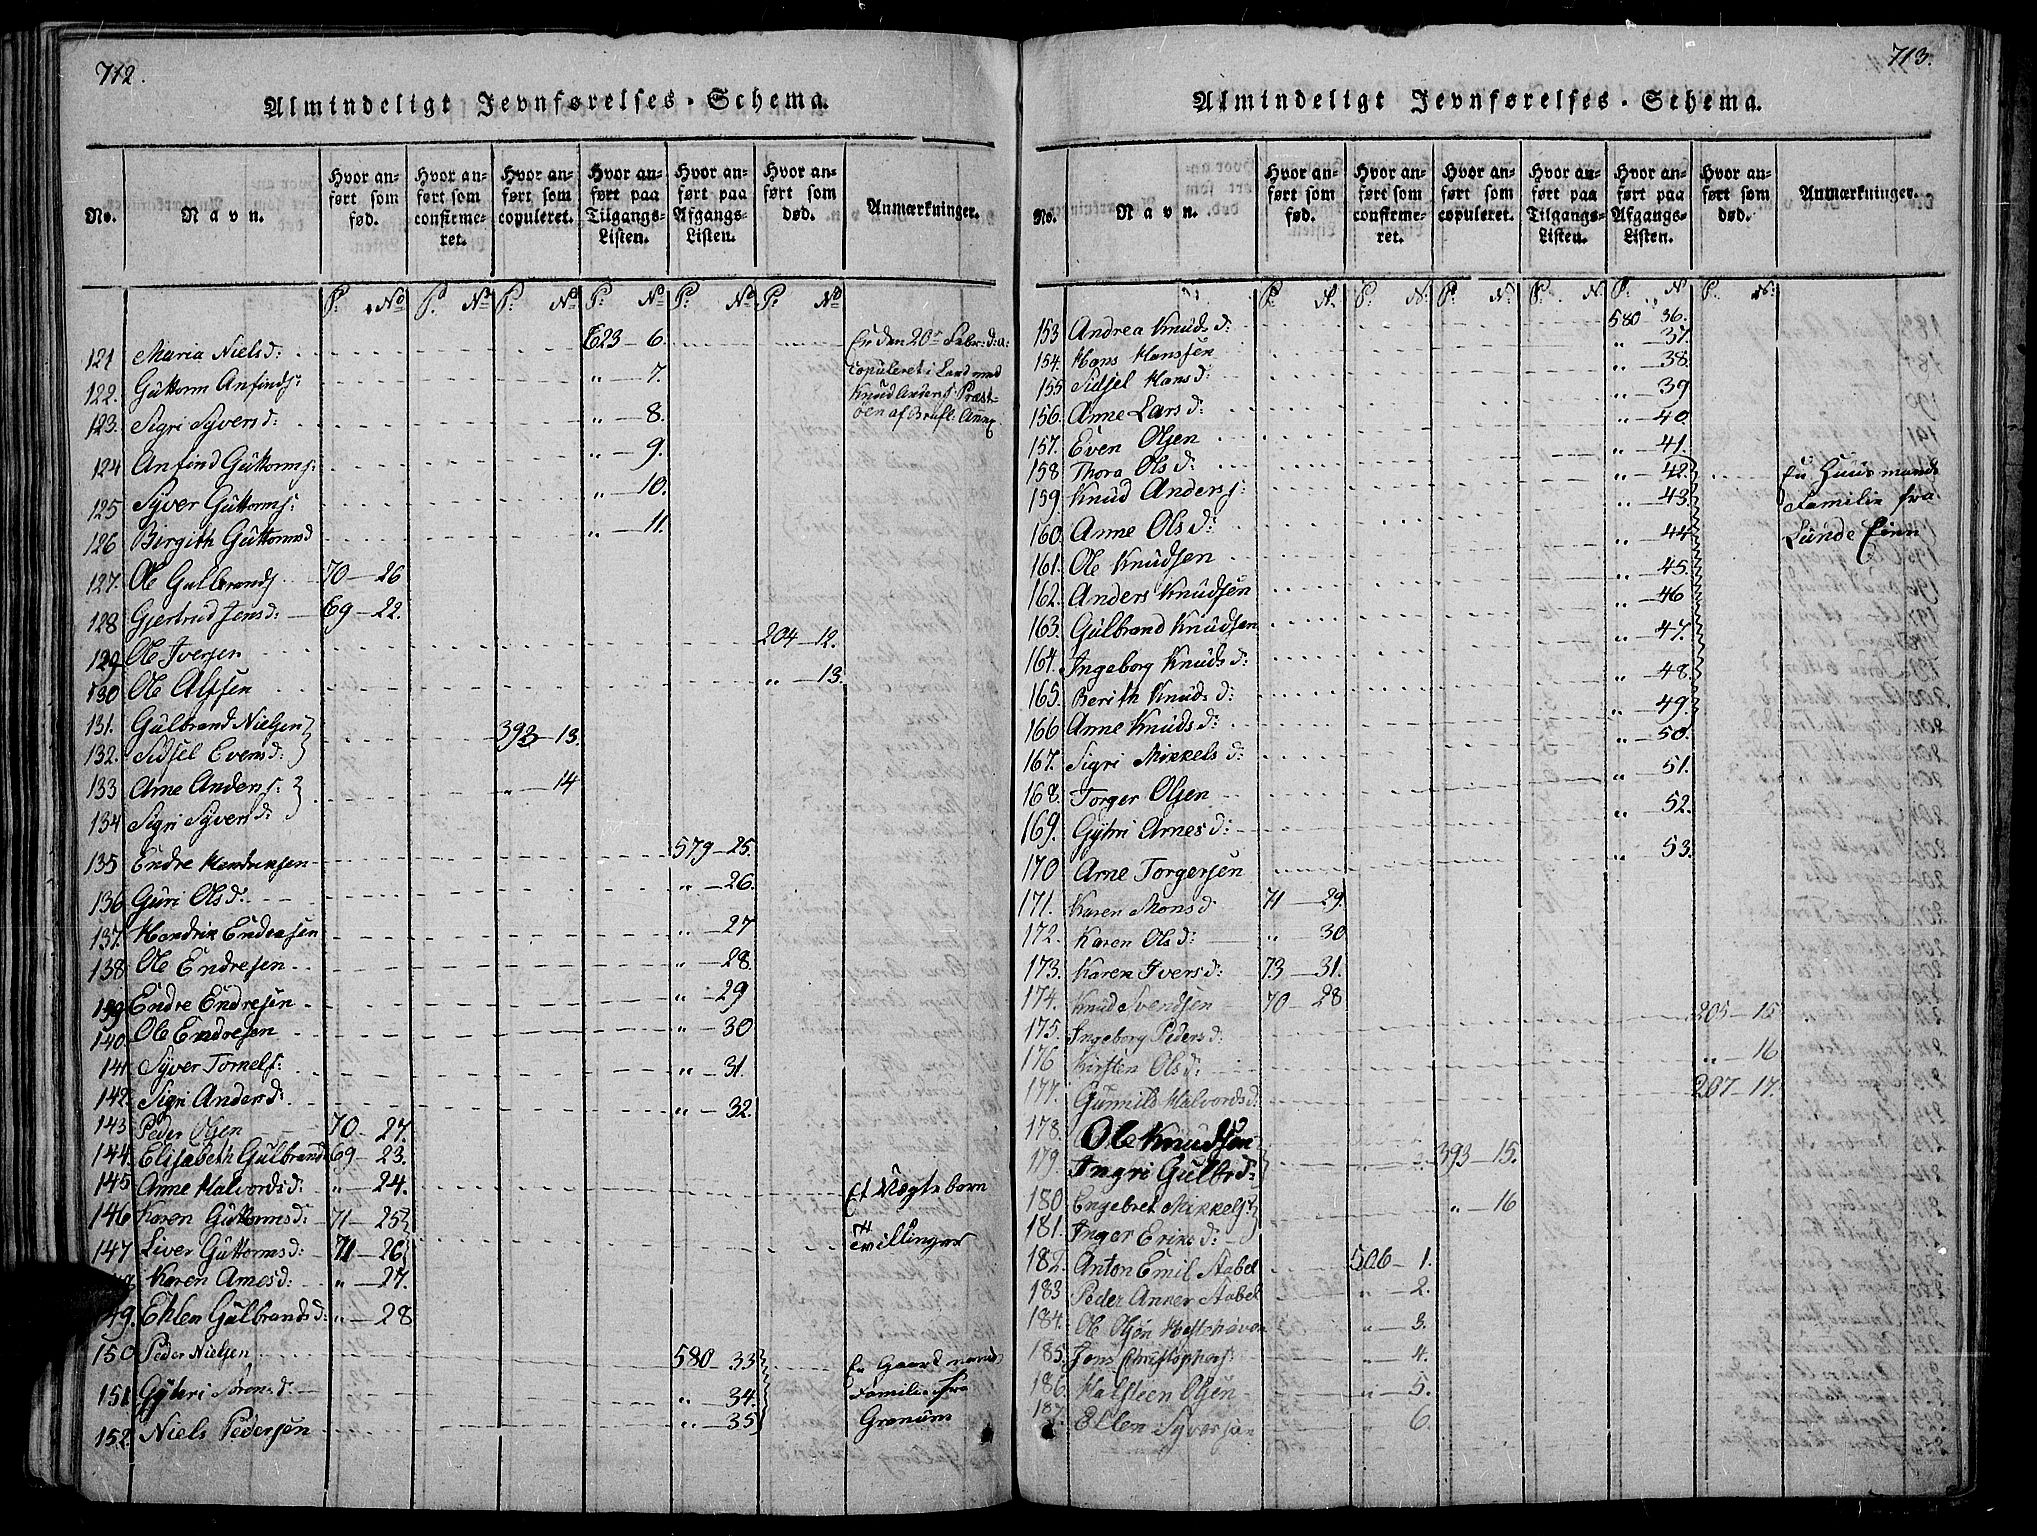 712.
Almindeligt Jevnførelses-Schema.
No.
Navn.
Hvor an-
ført som
fød.
Hvor an-
ført som
confirme-
ret.
Hvor an-
ført som
copuleret.
Hvor an-
ført paa
Tilgangs-
Listen.
Hvor an-
ført paa
Afgangs-
Listen.
Hvor an-
ført som
død.
Anmærkninger.
P: No P: No P: No P: No P: No P: No
121 Maria Nielsd: 623 - 6.
122. Guttorm Anfinds: " - 7.
123. Sigri Syversd: " - 8.
124 Anfind Guttorms: " - 9.
125 Syver Guttorms: " - 10.
126 Birgith Guttormsd " - 11.
copuleret i Land med
127. Ole Gulbrands 70 - 26
128 Gjertrud Jensd: 69 - 22.
129 Ole Iversen 204 - 12.
130 Ole Alfsen " - 13.
131. Gulbrand Nielsen
132. Sidsel Evensd: 393 - 13.
133 Arne Anders:
134 Sigri Syversd: " - 14
135 Endre Hendriksen 579 - 25.
136 Guri Olsd: " - 26.
137. Hendrik Endresen " - 27
138 Ole Endresen " - 28.
139 Endre Endresen " - 29
140. Ole Endresen " - 30
141. Syver Tomels: " - 31.
142. Sigri Andersd: " - 32.
143 Peder Olsen 70 - 27.
144. Elisabeth Gulbrands 69 - 23.
145 Anne Halvordsd: " - 24. Et Uægte barn
146 Karen Guttormsd: 71 - 25
147 Liver Guttormsd: 71 - 26 Tvillinger
Karen Arnesd: " - 27.
49. Ehlen Gulbrandsd: " - 28
150 Peder Nielsen 580 - 33 En Gaardmands
151 Gyhri Sørensd: " - 34. Familie fra
152. Niels Pedersen " - 35 Grønum
713.
Almindeligt Jevnførelses-Schema.
No.
Navn.
Hvor an-
ført som
fød.
Hvor an-
ført som
confirme-
ret.
Hvor an-
ført som
copuleret.
Hvor an-
ført paa
Tilgangs-
Listen.
Hvor an-
ført paa
Afgangs-
Listen.
Hvor an-
ført som
død.
Anmærkninger.
P: N. P: N: P: N: P: N. P: N P: N:
153 Andrea Knudsd: 580 - 36.
154. Hans Hanssen " - 37.
155 Sidsel Hansd: " - 38.
156. Anne Larsd: " - 39
157. Even Olsen " - 40
158 Thora Olsd: " - 41.
159 Knud Anders: " - 42. En Huusmands
160. Anne Olsd: " - 43. Familie fra
161. Ole Knudsen " - 44 Lunde Eiern
162. Anders Knudsen " - 45.
163. Gulbrand Knudsen " - 46
164. Ingeborg Knudsd: " - 47.
165. Berith Knudsd: " - 48.
166 Anne Knudsd: " - 49
167. Sigri Mikkelsd: " - 50.
168. Torger Olsen " - 51.
169. Gyhri Arnesd: " - 52.
170 Arne Torgersen " - 53.
171. Karen Monsd: 71 - 29.
172. Karen Olsd: " 30
173. Karen Iversd: 73 - 31.
174. Knud Svendsen 70 - 28
175. Ingeborg Pedersd: 205 - 15
176 Kirsten Olsd: " - 16
177. Gunnild Halvordsd: 207 - 17.
178. Ole Knudsen
179. Ingri Gulbrd: 393 - 15.
180 Engebret Mikkels:
181. Inger Eriksd: " - 16
182. Anton Emil Stabel 506 - 1.
183 Peder Anner Stabel " - 2.
184. Ole Olsen " - 3.
185. Jens Christophers: " - 4.
186. Halsteen Olsen " - 5.
187. Ellen Syversen " 6.